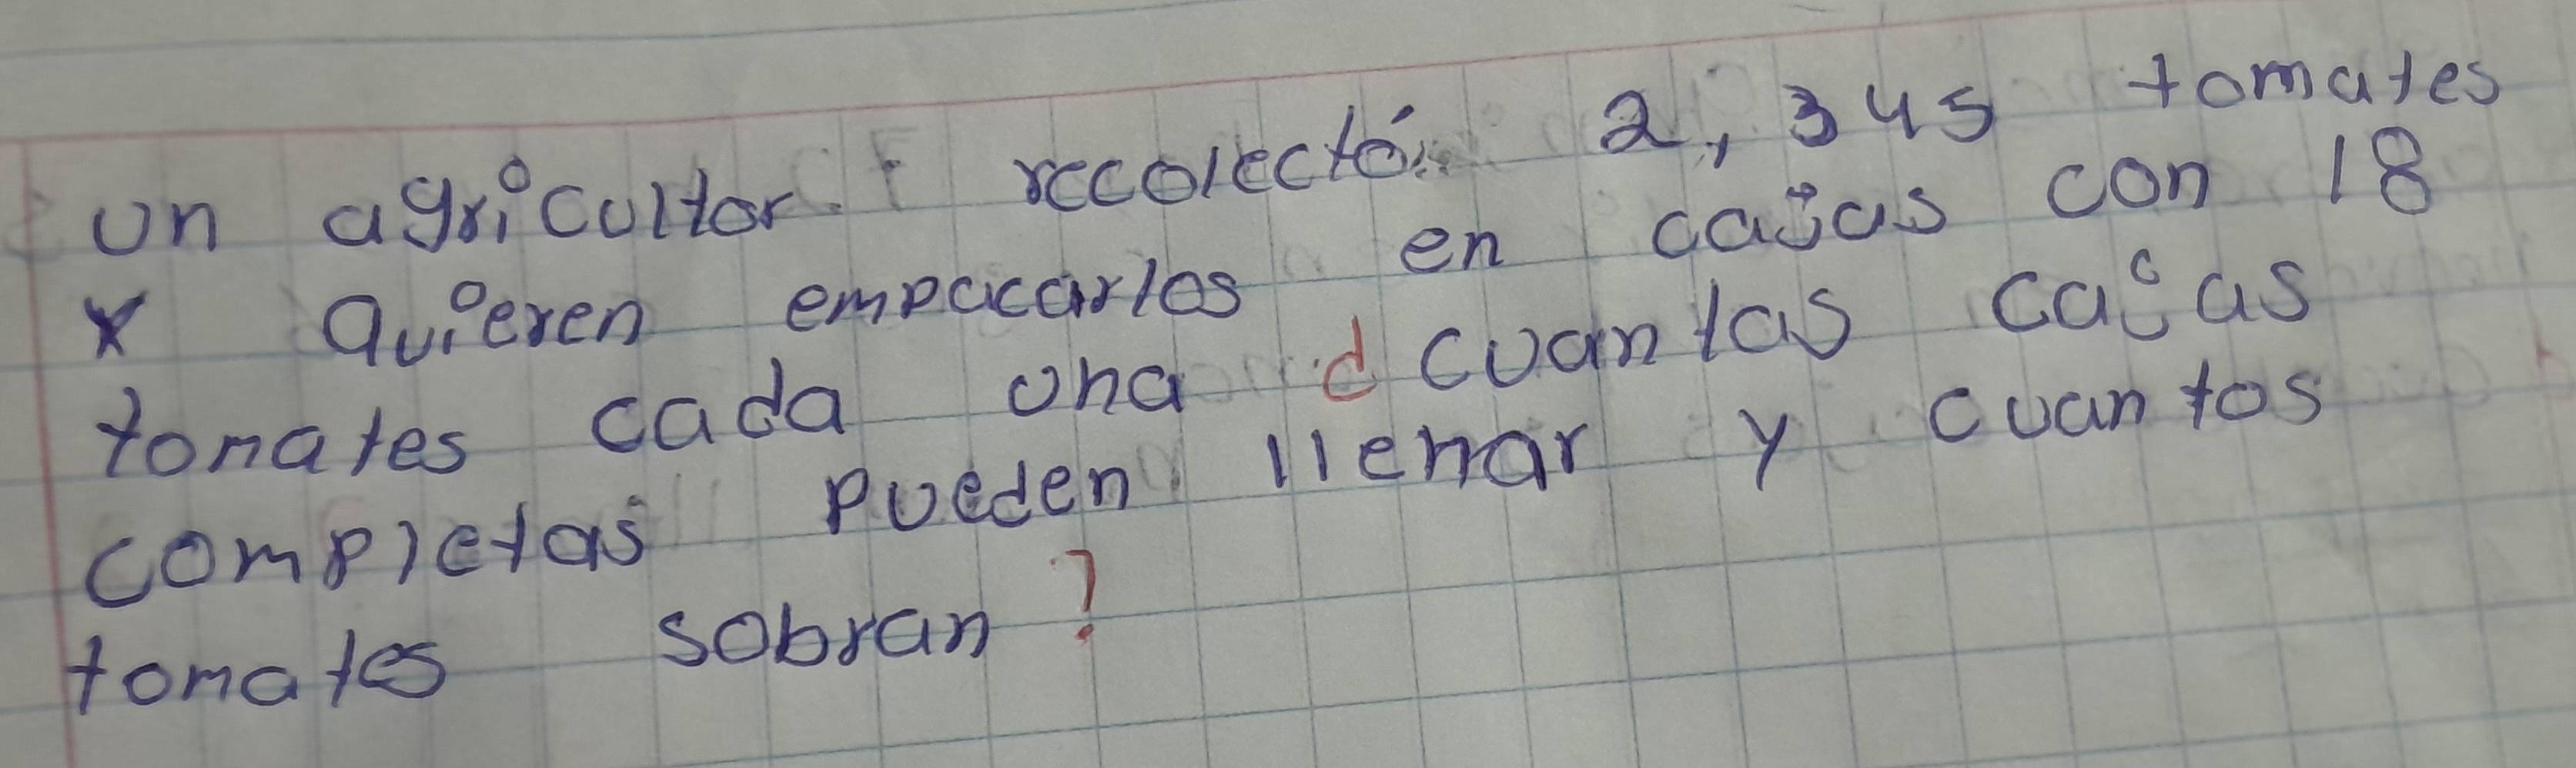 un agricultor recolectó 2,345 tomates
x quieren empacarlos en cajas con 18
tomates cada una ¿cuantas cajas
completas pueden llenar y cuantos
tomates sobran?